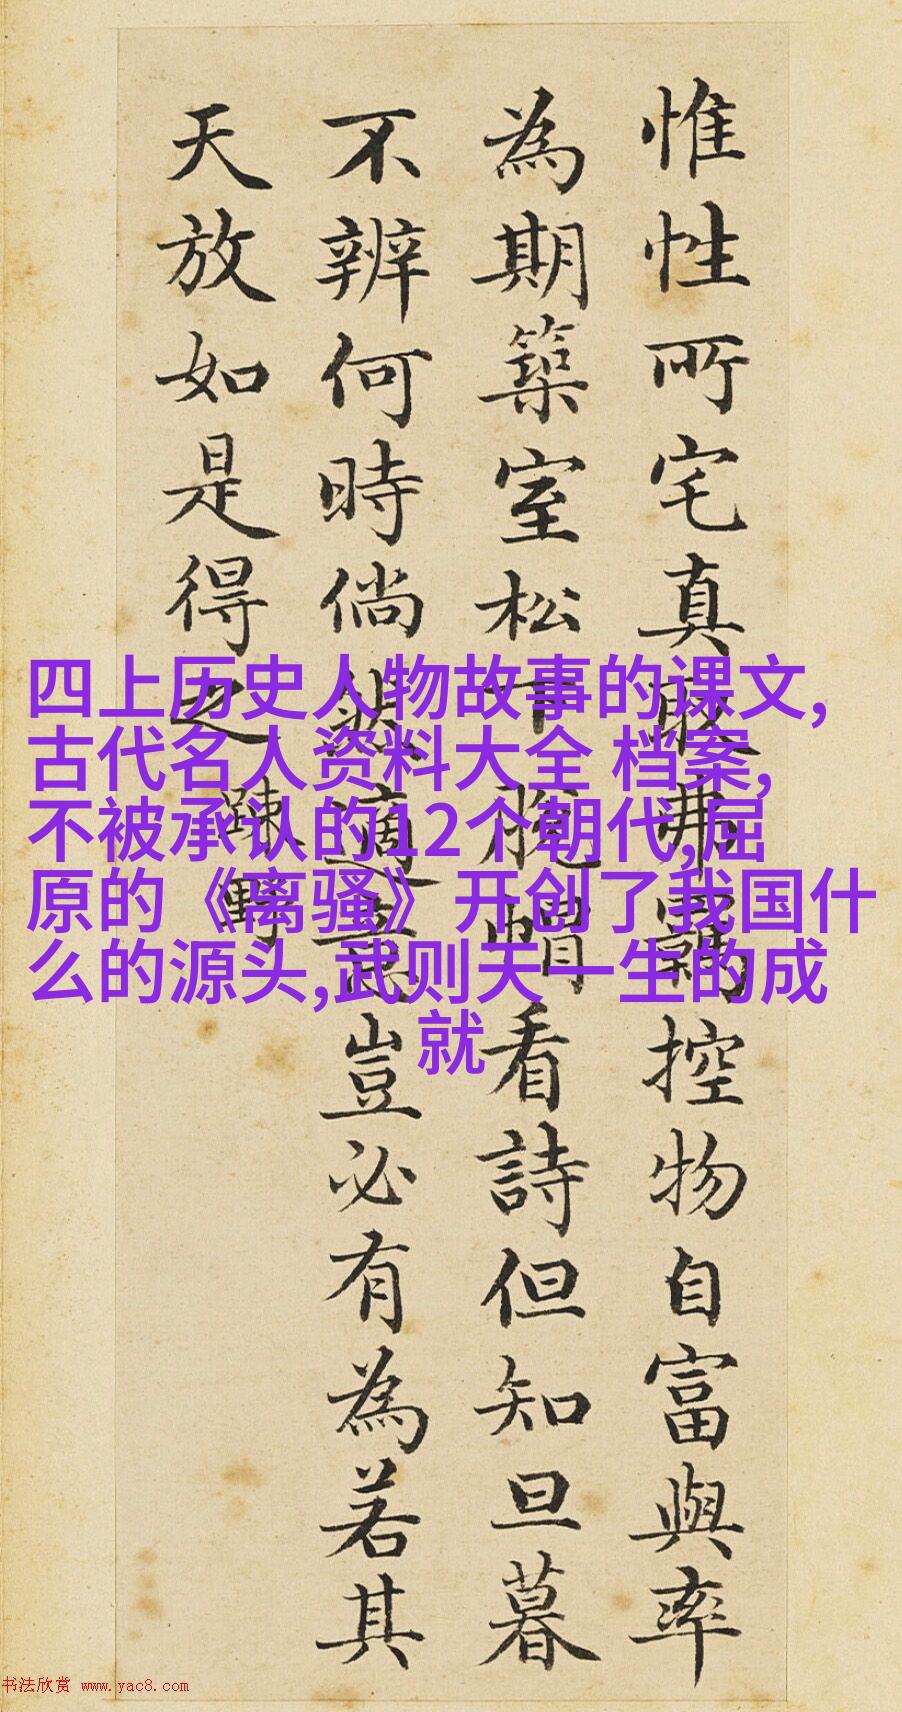 惟性所宅真取弗羈控物自富與率
為期築室松下脫帽看詩但知旦暮
不辨何時倘然適意豈必有為若其
天放如是得之
踈野
四上历史人物故事的课文,
古代名人资料大全 档案,
不被承认的12个朝代,屈
原的《离骚》开创了我国什
么的源头,武则天一生的成
就
书法欣赏 www.yac8.com